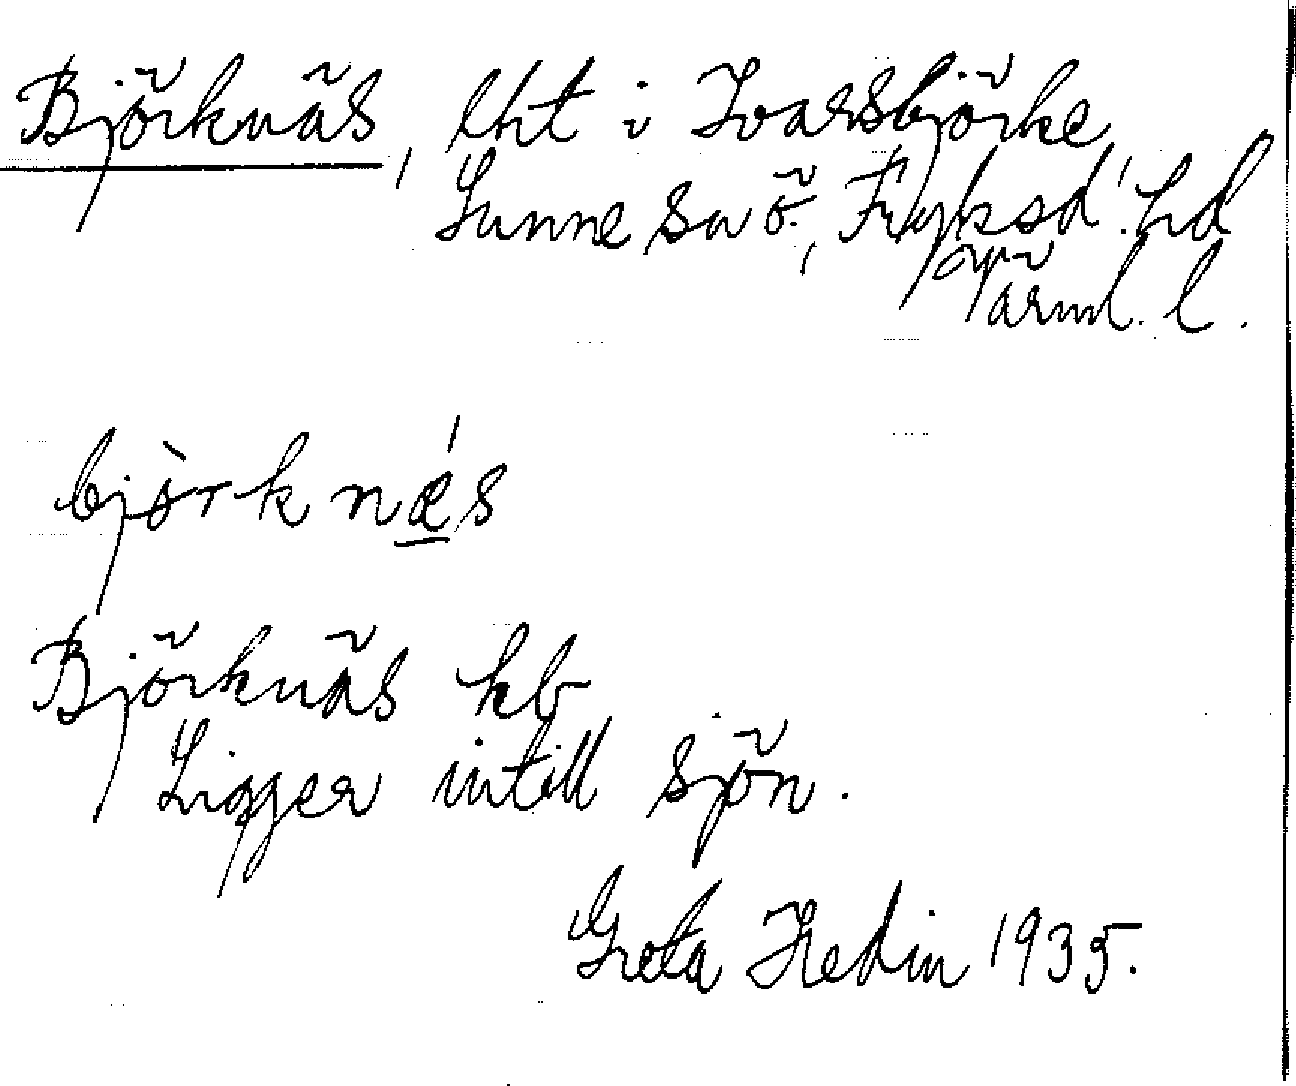 Björknäs, lht i Ivarsbjörke
Sunne sn ö., Fryksd. hd
Värml. l.
bjòrknǽs
Björknäs kb
Ligger intill sjön.
Greta Hedin 1935.